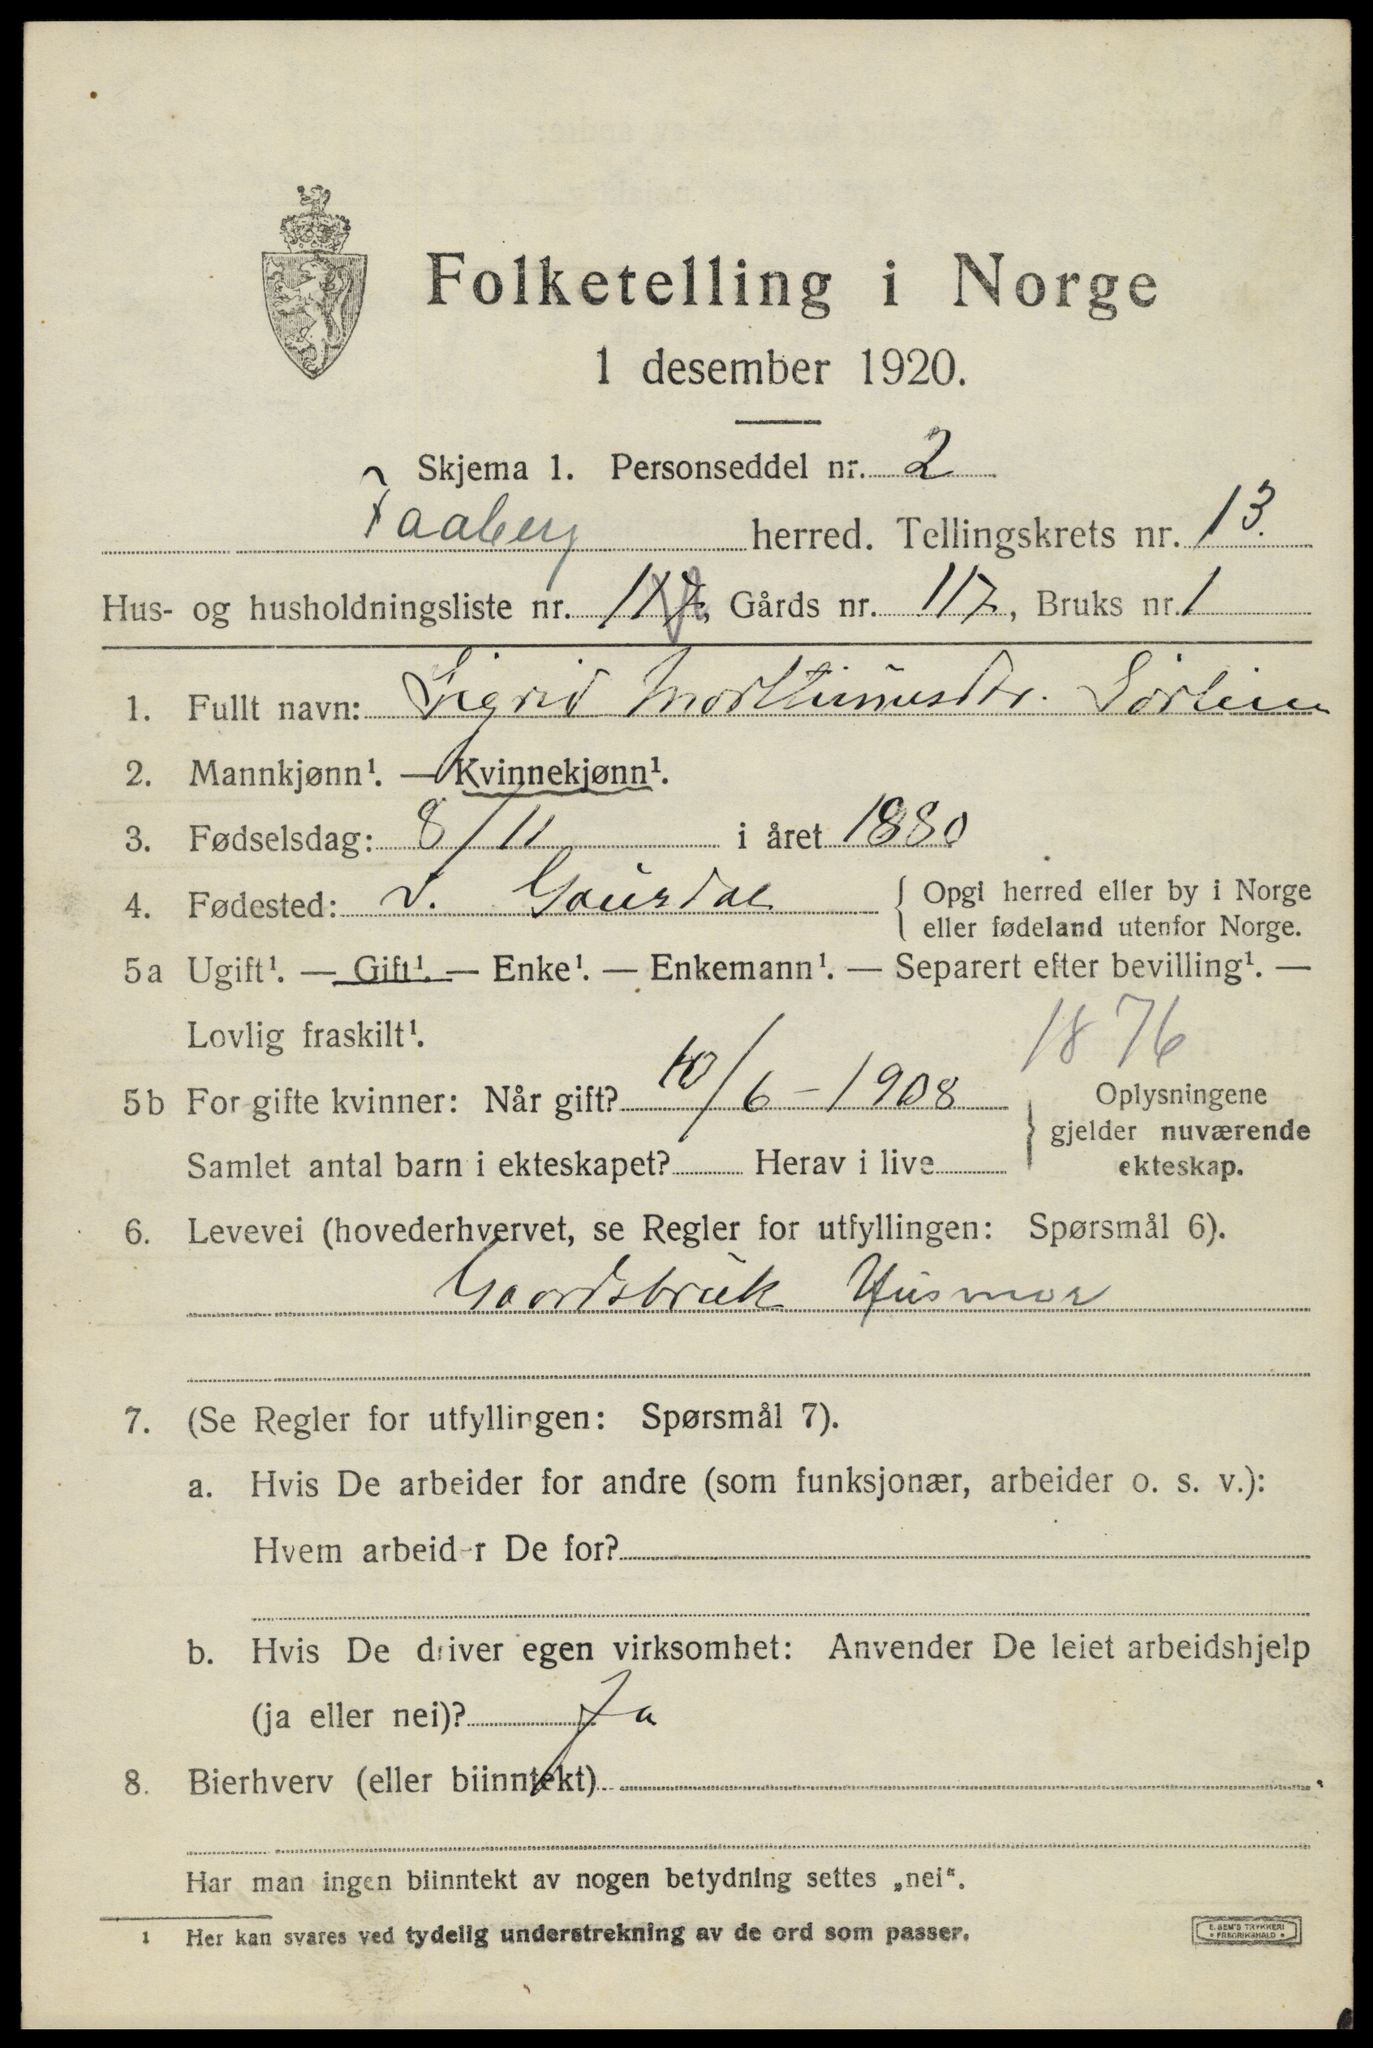 Folketelling i Norge
1 desember 1920.
Skjema 1. Personseddel nr. 2
Faaberg herred. Tellingskrets nr. 13.
Hus- og husholdningsliste nr. Gårds nr. 117, Bruks nr. 1
1. Fullt navn: Sigrid Morthinusdtr. Sörlien
2. Mannkjønn¹. — Kvinnekjønn¹.
3. Fødselsdag: 8/11 i året 1880
4. Fødested: Gausdal { Opgi herred eller by i Norge
eller fødeland utenfor Norge.
5a Ugift¹. — Gift¹. — Enke¹. — Enkemann¹. — Separert efter bevilling¹. —
Lovlig fraskilt¹.
1876
5b For gifte kvinner: Når gift? 10/6 - 1908 } Oplysningene
gjelder nuværende
Samlet antal barn i ekteskapet? Herav i live ekteskap.
6. Levevei (hovederhvervet, se Regler for utfyllingen: Spørsmål 6).
Gaardsbruk Husmor
7. (Se Regler for utfyllingen: Spørsmål 7).
a. Hvis De arbeider for andre (som funksjonær, arbeider o. s. v.):
Hvem arbeider De for?
b. Hvis De driver egen virksomhet: Anvender De leiet arbeidshjelp
(ja eller nei)? Ja
8. Bierhverv (eller biinntekt)
Har man ingen biinntekt av nogen betydning settes „nei“.
1 Her kan svares ved tydelig understrekning av de ord som passer.
E. SEM'S TRYKKERI
• FREDRIKSHALD •